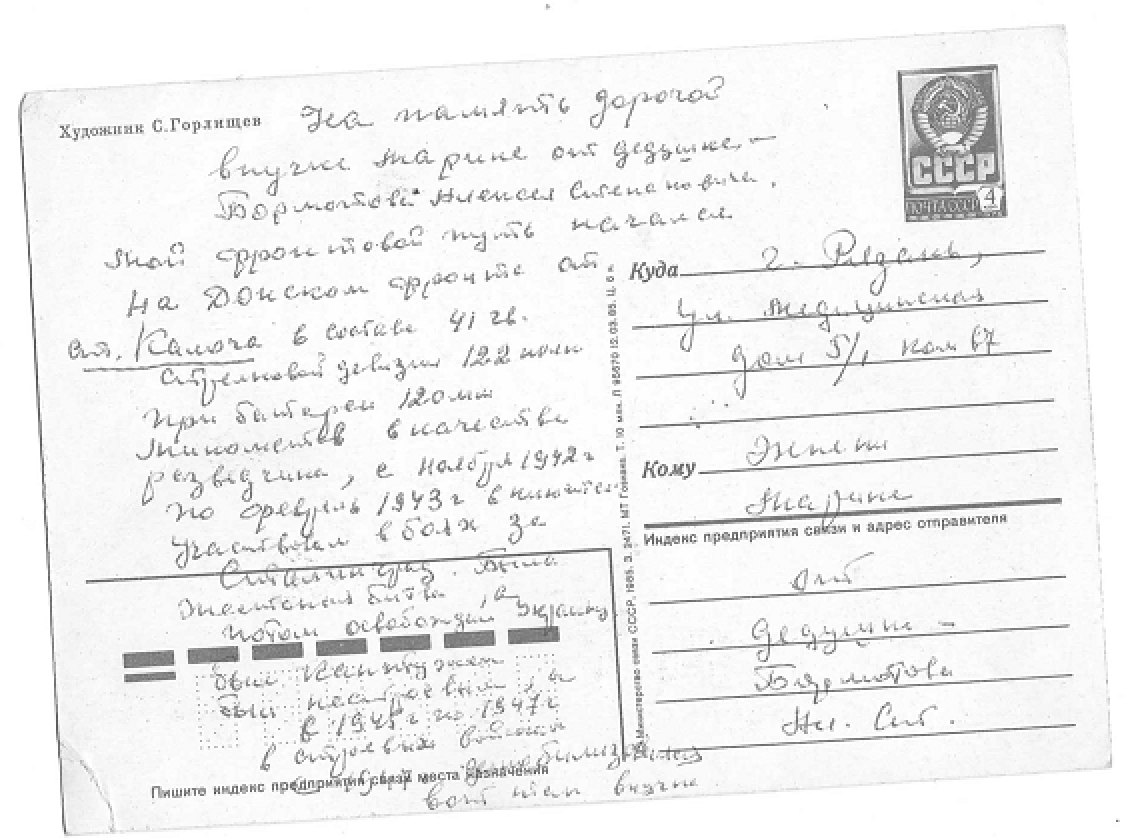 Художник С.Горлищев
На память дорогой
внучке Марине от дедушки -
Бормотова Алексея Степановича.
Мой фронтовой путь начался
на Донском фронте от
ст. Калача в составе 41 гв.
стрелковой девизии 122 полк
при батареи 120 мм
минометов в качестве
разведчика, с ноября 1942 г
по февраль 1943 г включител.
участвовал в боях за
Сталинград. Была
жестокая битва, а
потом освобождал Украину
был контужен
был нестроевым, а
в 1945 г по 1947 г
в строевых войсках
вот так внучка
Пишите индекс предприятия связи места назначения
СССР
ПОЧТА СССР
4
Куда г. Рязань,
ул. Медицинская
дом 5/1, ком 67
Кому
Марине
Индекс предприятия связи и адрес отправителя
от
дедушки -
Бормотова
Ал. Ст.
Министерство связи СССР, 1985. З. 2471. МТ Гознака. Т. 10 млн. Л 95670 12.03.85. Ц. 6 к.